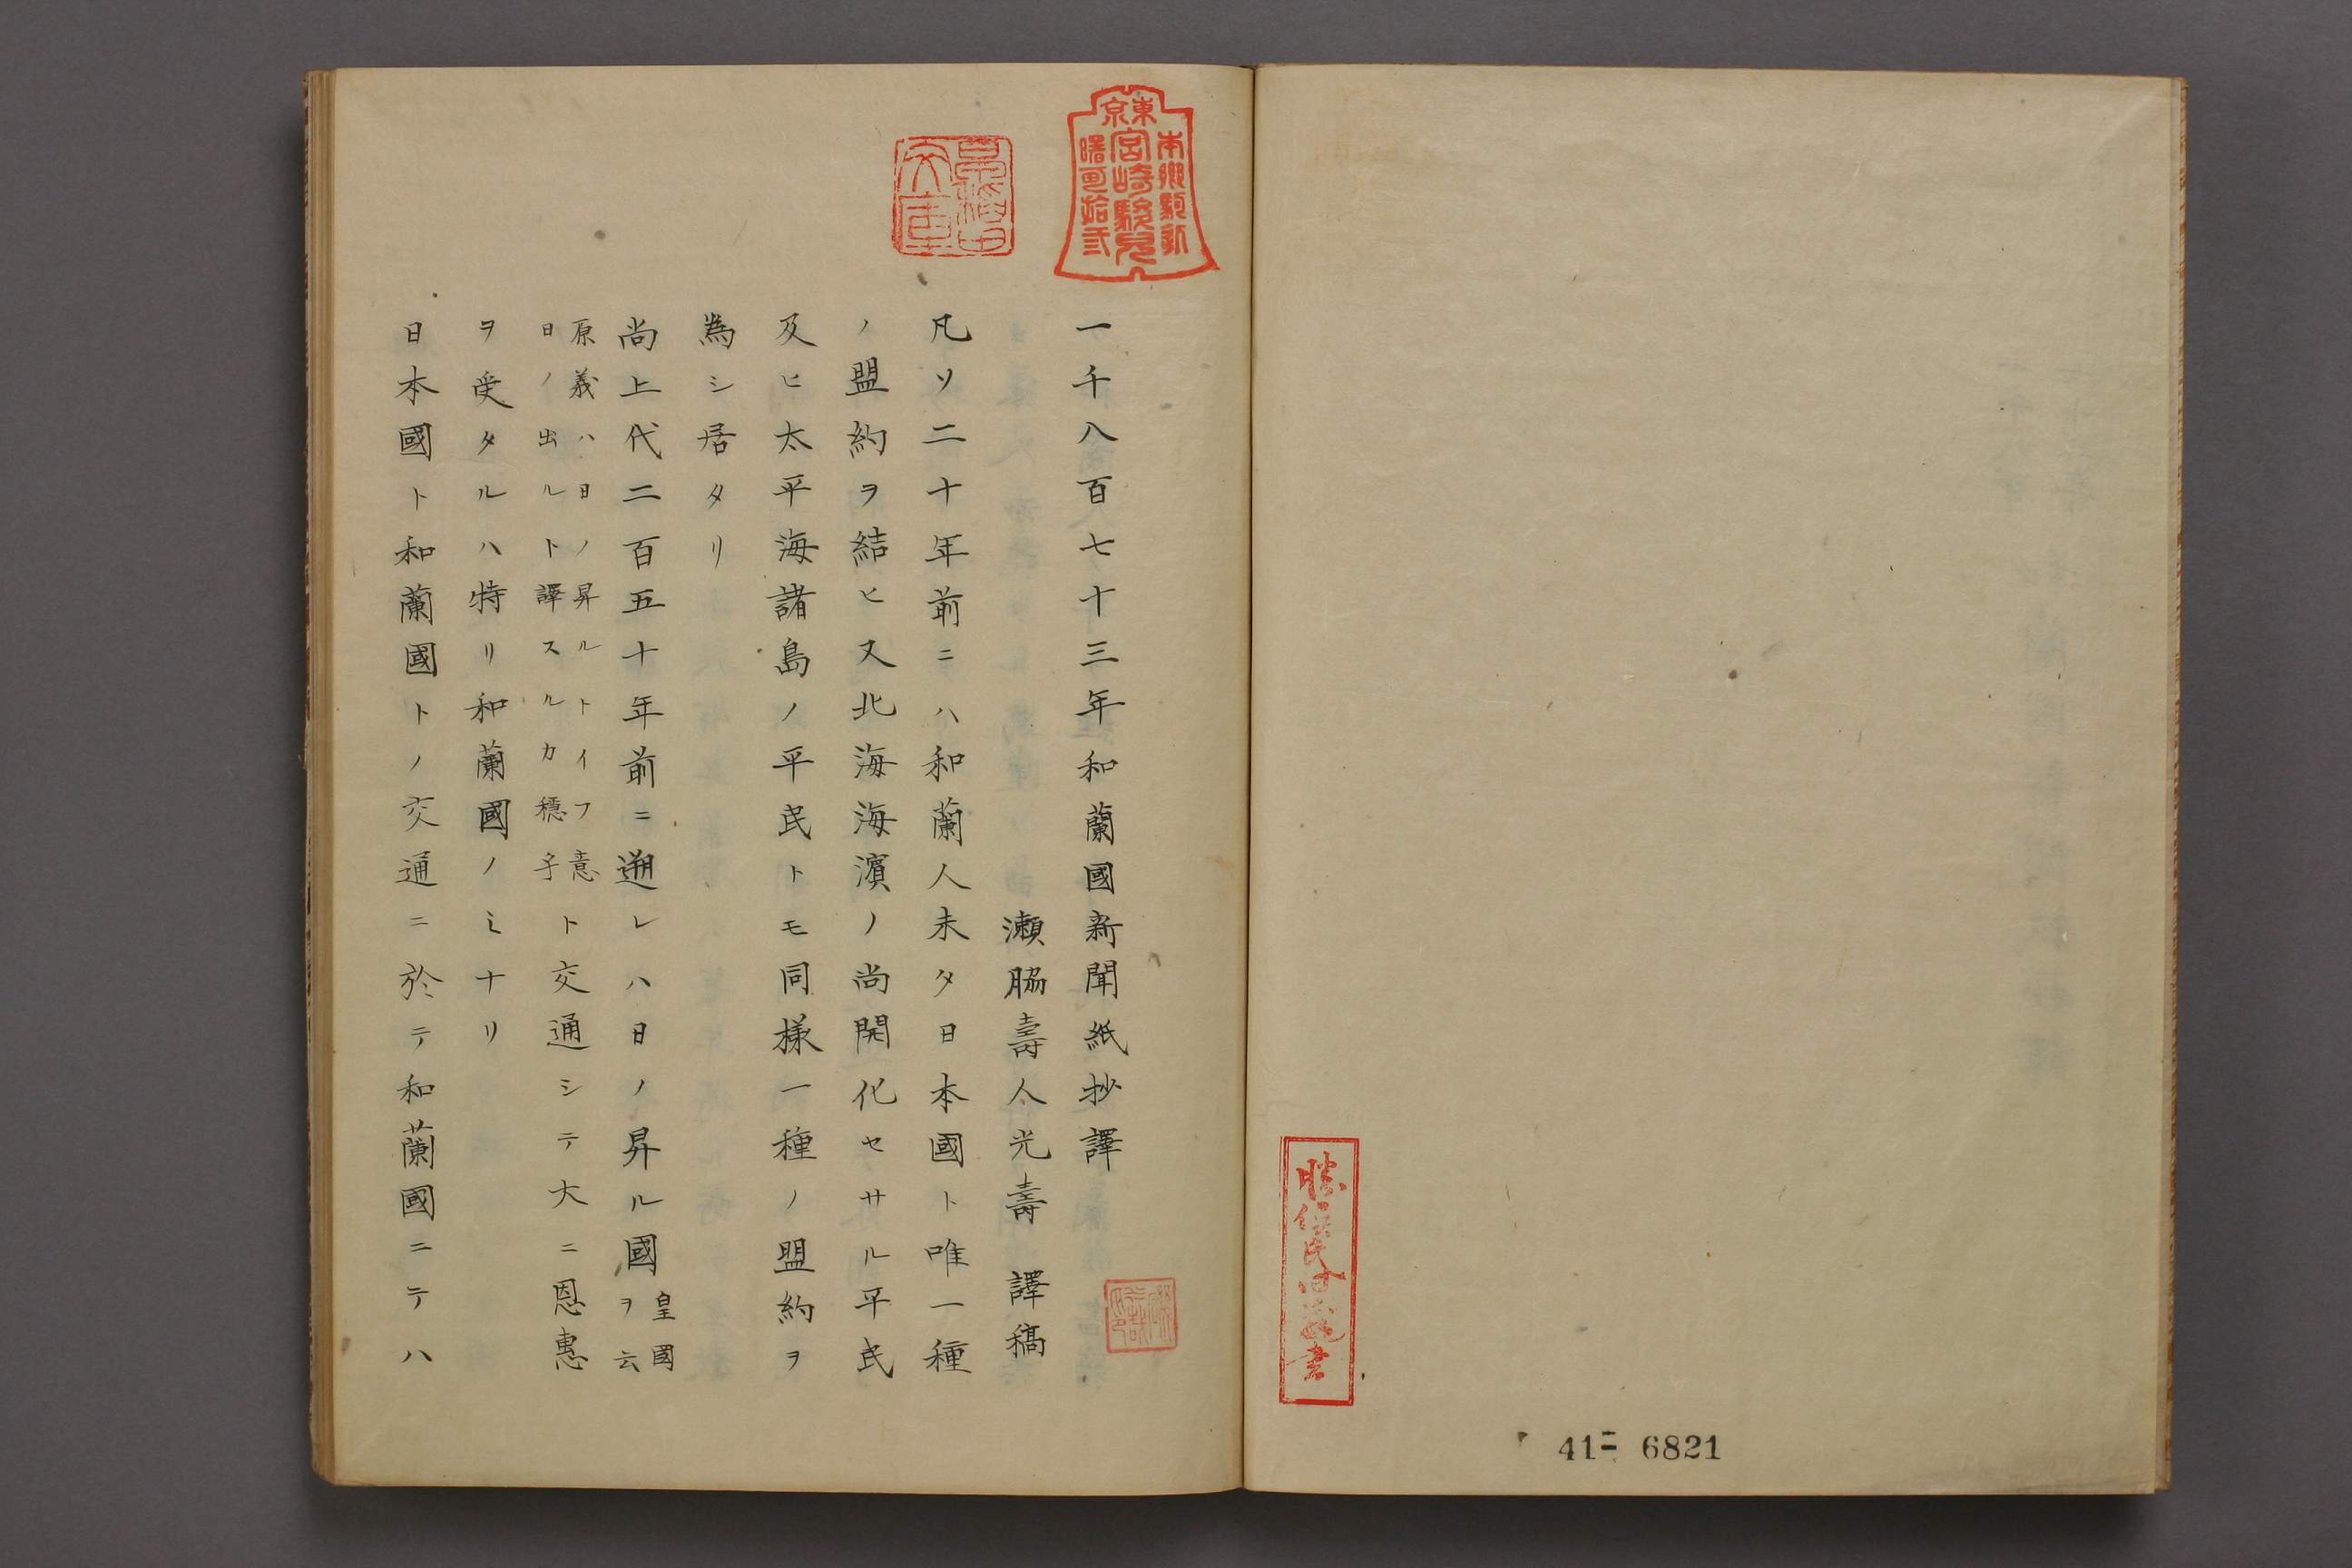 41= 6821
東京
本郷駒込
宮崎駿児
曙町拾弐
一千八百七十三年和蘭國新聞紙抄譯
瀬脇壽人光壽 譯稿
凡ソ二十年前ニハ和蘭人未タ日本國ト唯一種
ノ盟約ヲ結ヒ又北海海濱ノ尚開化セサル平民
及ヒ太平海諸島ノ平民トモ同樣一種ノ盟約ヲ
為シ居タリ
尚上代二百五十年前ニ遡レハ日ノ昇ル國皇國ヲ云
原義ハ日ノ昇ルトイフ意
日ノ出ルト譯スルカ穩子ト交通シテ大ニ恩惠
ヲ受タルハ特リ和蘭國ノミナリ
日本國ト和蘭國トノ交通ニ於テ和蘭國ニテハ